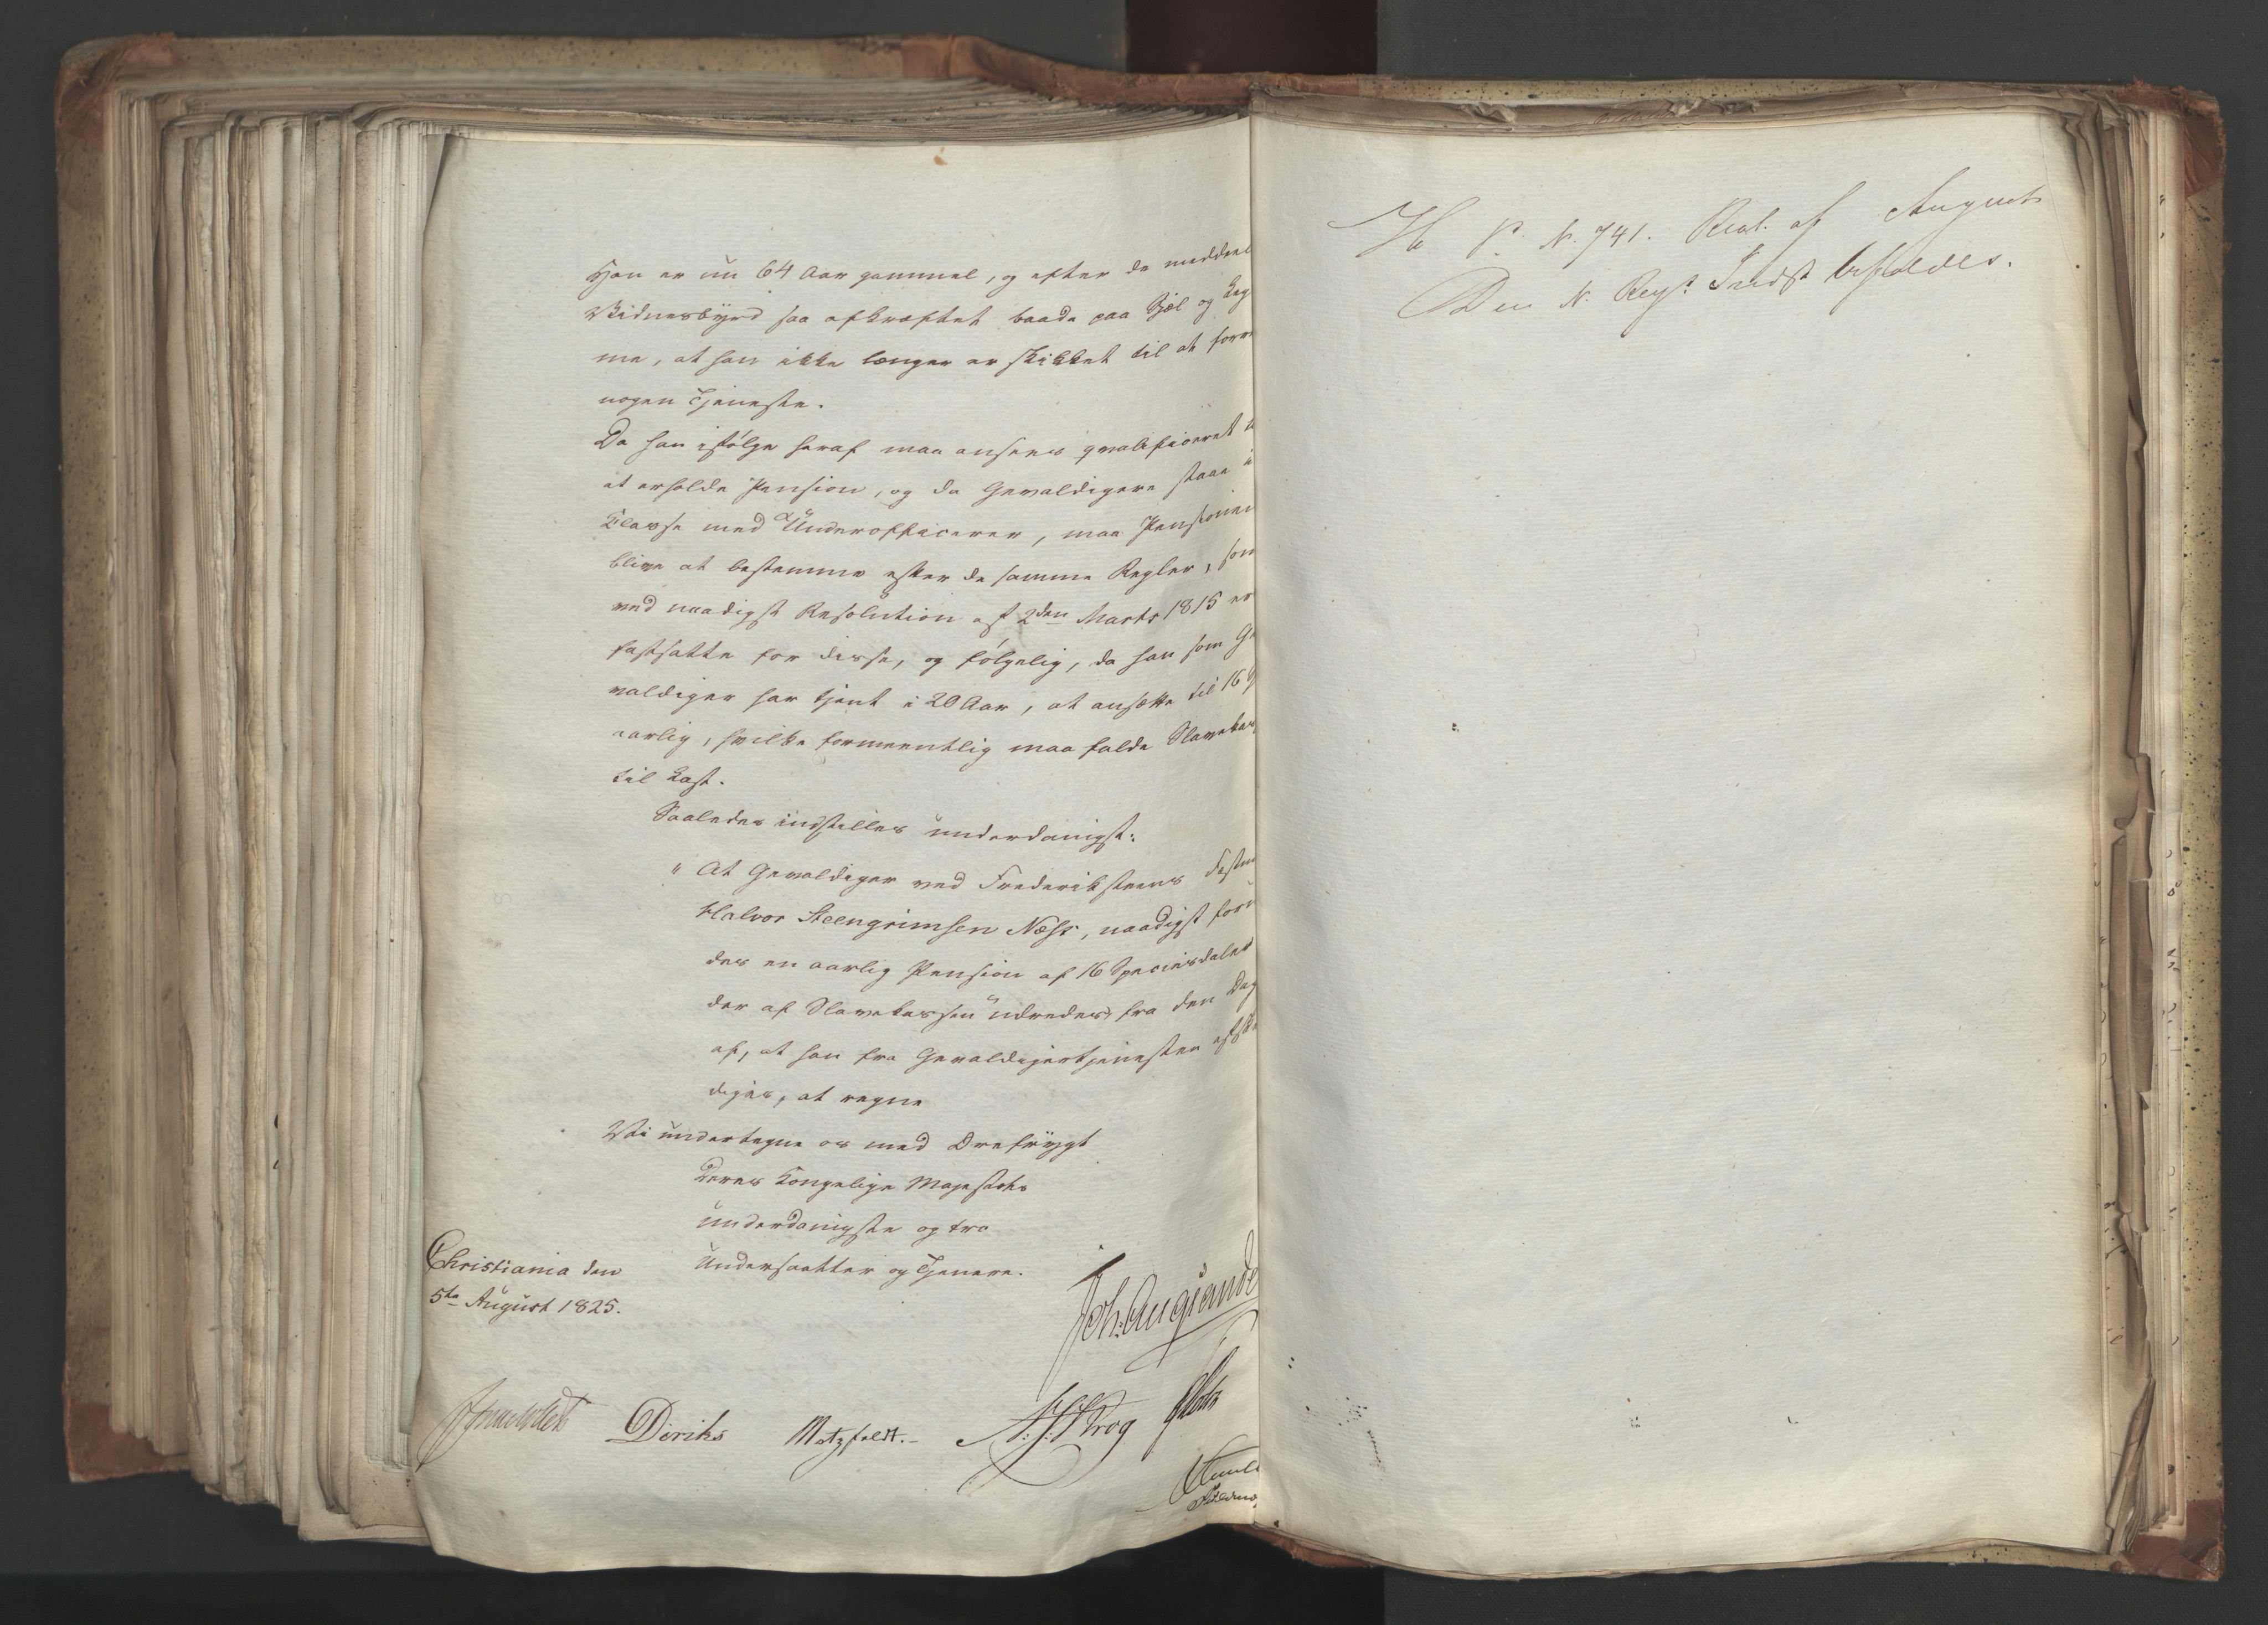 Han er nu 64 Aar gammel, og efter de meddeel
Vidnesbyrd saa afkræftet baade paa Sjel og Leg
me, at han ikke længer er skikket til at forre
nogen Tjeneste.
Da han ifølge heraf maa ansees qvalificeret
at erholde Pension, og da Gevaldigere staae i
Klasse med Underofficerer, maa Pensionen
blive at bestemme efter de samme Regler, som
ved naadigst Resolution af 2den Marts 1815 er
fastsatte for disse, og følgelig, da han som Ge
valdiger har tjent i 20 Aar, at ansætte til 16
aarlig, hvilke formeentlig maa falde Slavekas
til Last.
Saaledes indstilles underdanigst:
" At Gevaldiger ved Frederiksteens Festn
Halvor Steengrimsen Næss, naadigst forun
des en aarlig Pension af 16 Speciesdaler
der af Slavekassen udredes, fra den Dag
af, at han fra Gevaldigertjenesten afske
diges, at regne
Vi undertegne os med Ærefrygt
Deres Kongelige Majestæts
underdanigste og tro
Undersaatter og Tjenere.
Christiania den
5te August 1825.
Joh: Aug: Sande
Diriks Motzfeldt. Krog
H P. N. 741. Resol. af August
Den N. Reg.s Indst bifaldes.